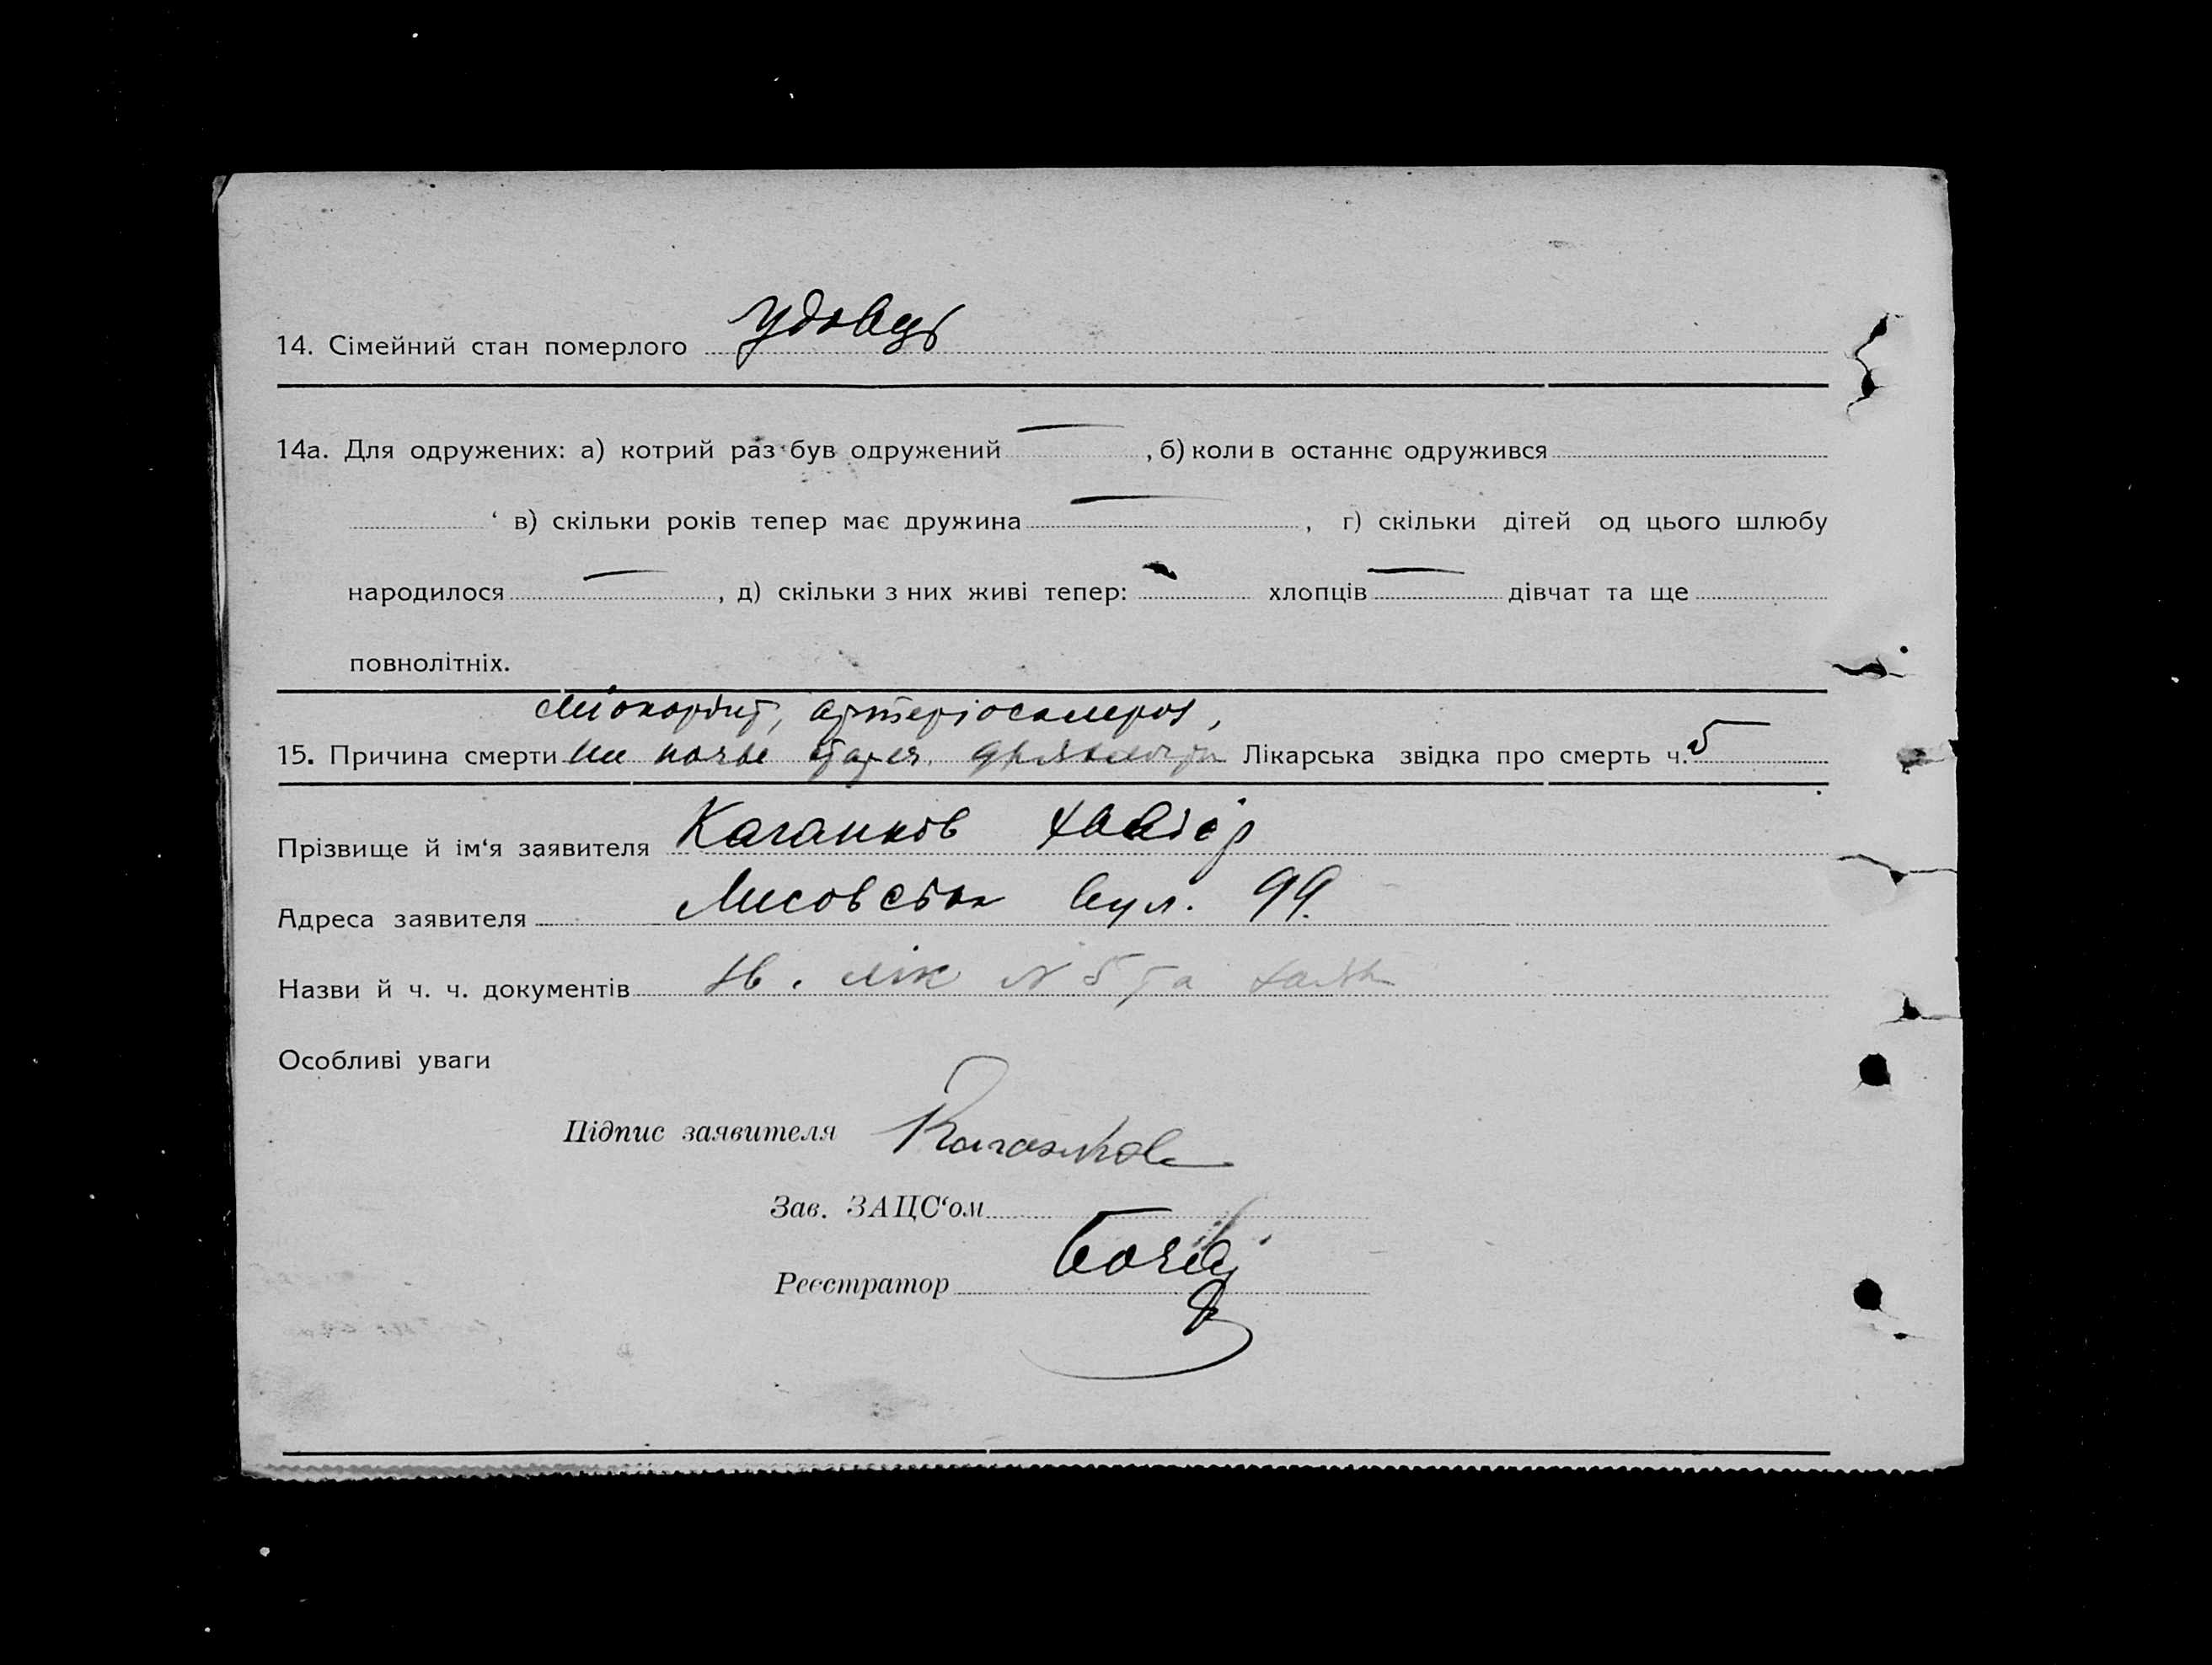 14. Сімейний стан померлого удовець
14а. Для одружених: а) котрий раз був одружений , б) коли в останнє одружився
‘ в) скільки років тепер має дружина , г) скільки дітей од цього шлюбу
народилося , д) скільки з них живі тепер: хлопців дівчат та ще
повнолітніх.
Міокардит, артеріосклероз,
15. Причина смерти на почве Лікарська звідка про смерть ч. 5
Прізвище й ім‘я заявителя Каганков
Адреса заявителя вул. 99.
Назви й ч. ч. документів зв. лік N 5 та
Особливі уваги
Підпис заявителя
Зав. ЗАЦС‘ом
Реєстратор